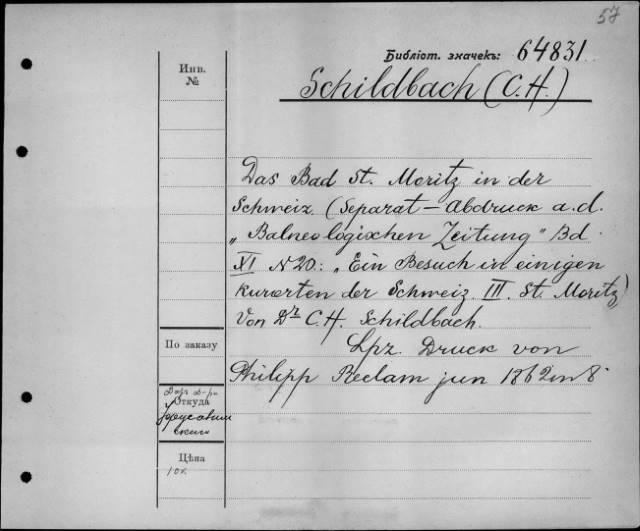 57
Библіот. значекъ: 64831
Инв.
№
Schildbach (C. H.)
Das Bad St. Moritz in der
Schweiz. (Separat-Abdruck a. d.
„Balneologischen Zeitung" Bd.
XI N 20: „Ein Besuch in einigen
Kurorten der Schweiz. III. St. Moritz)
Von Dr C. H. Schildbach.
По заказу
Lpz. Druck von
Philipp Reclam jun 1862 in 8°
Откуда
Цѣна
10к.